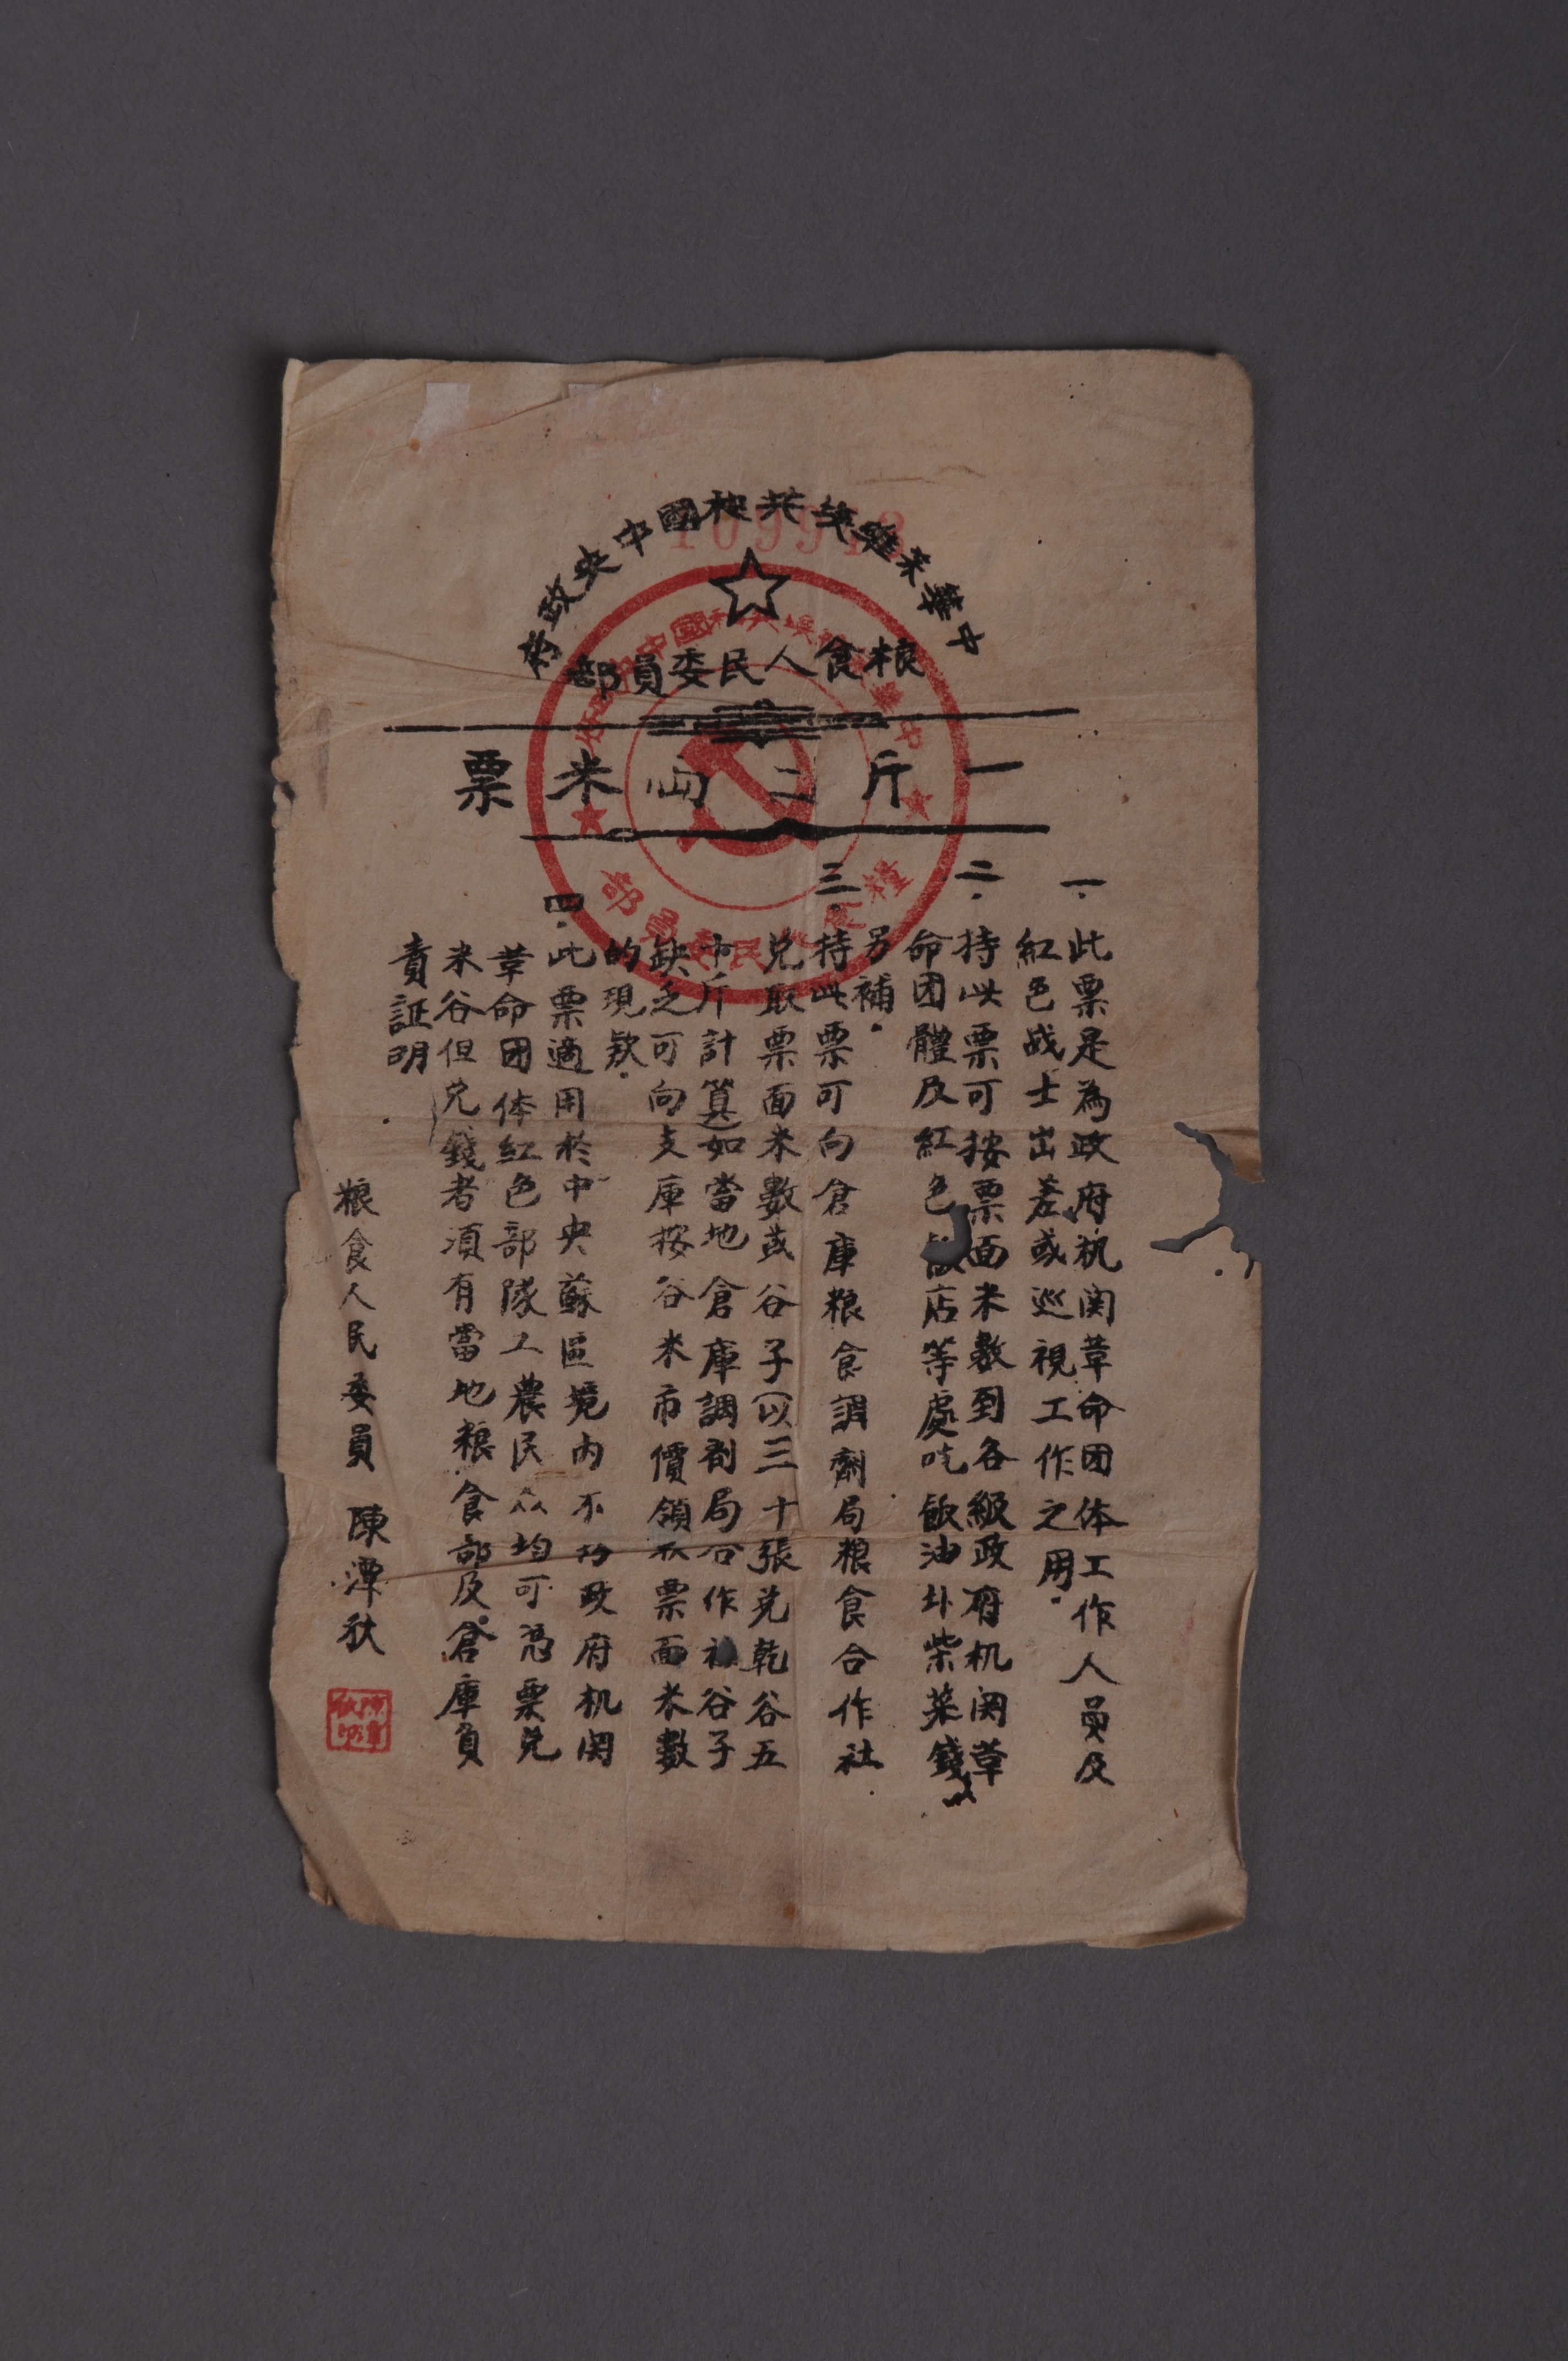 中華蘇維埃共和國中央政府
粮食人民委員部
一斤二兩米票
一.此票是為政府机関革命团体工作人員及
紅色战士出差或巡視工作之用.
二.持此票可按票面米數到各級政府机関革
命团體及紅色飯店等處吃飯油盐柴菜錢
另補.
三.持此票可向倉庫粮食調劑局粮食合作社
兑取票面米數或谷子(以三十張兑乾谷五
十斤計算)如當地倉庫調剂局合作社谷子
缺乏可向支庫按谷米市價領取票面米數
的現欵.
四.此票適用於中央蘇區境内不拘政府机関
革命团体紅色部隊工農民众均可憑票兑
米谷但兑錢者須有當地粮食部及倉庫負
責証明
粮食人民委員 陳潭秋